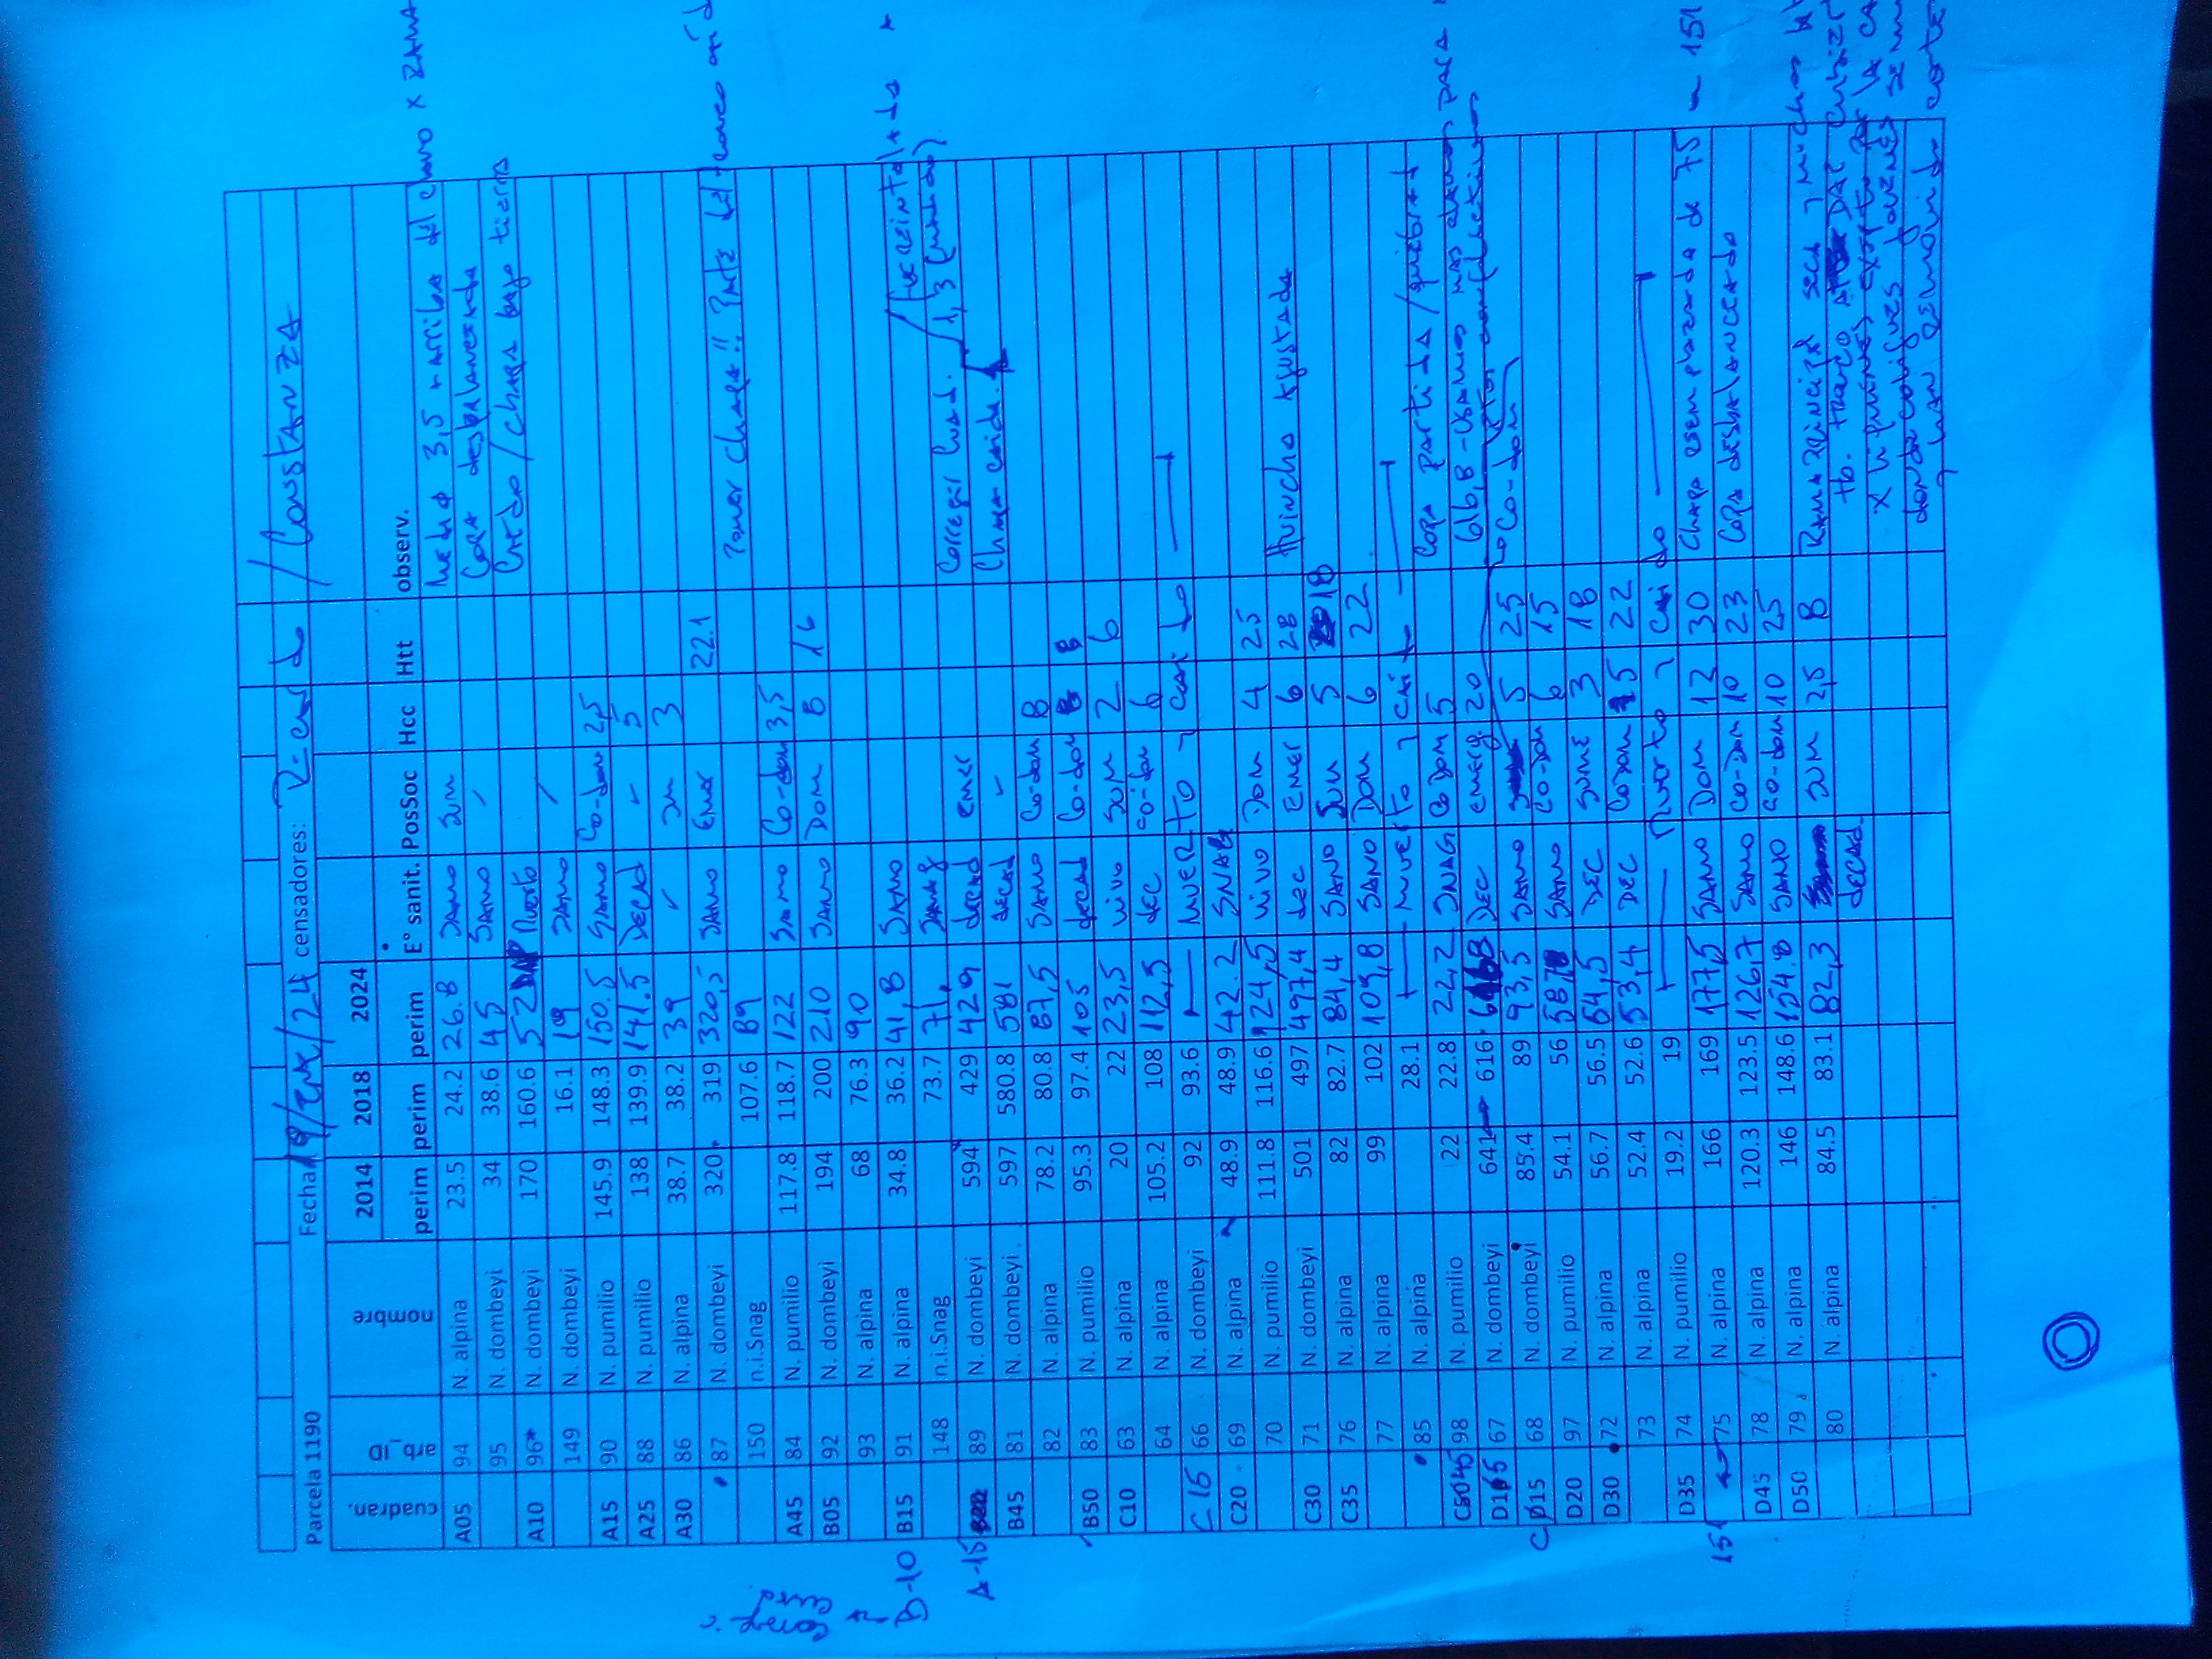 Parcela 1190 Fecha 19/ene/24 censadores: Ricardo / Constanza
cuadran. arb_ID nombre 2014 2018 2024
perim perim perim E° sanit. PosSoc Hcc Htt observ.
A05 94 N. alpina 23.5 24.2 26.8 Sano Sum Medido 3,5 + arriba del clavo x RAMA
95 N. dombeyi 34 38.6 45 Sano ✓ Copa desbalanceada
A10 96* N. dombeyi 170 160.6 52 Muerto Caido / chapa bajo tierra
149 N. dombeyi 16.1 19 Sano ✓
A15 90 N. pumilio 145.9 148.3 150.5 Sano Co-dom 2,5
A25 88 N. pumilio 138 139.9 141.5 Decad ✓ 5
A30 86 N. alpina 38.7 38.2 39 ✓ Su 3
87 N. dombeyi 320 319 320,5 Sano Emer 22.1
150 n.i.Snag 107.6 89 Poner chapa!! Parte del tronco
A45 84 N. pumilio 117.8 118.7 122 Sano Co-dom 3,5
B05 92 N. dombeyi 194 200 210 Sano Dom 8 16
93 N. alpina 68 76.3 90
B-10 B15 91 N. alpina 34.8 36.2 41,8 Sano
148 n.i.Snag 73.7 71. Snag
A-15 89 N. dombeyi 594 429 429 decad emer Corregir Cuad. / fue reinstalada a 1,3 (medido)
B45 81 N. dombeyi 597 580.8 581 decad ✓ Chapa caida.
82 N. alpina 78.2 80.8 87,5 Sano Co-dom 8
B50 83 N. pumilio 95.3 97.4 105 decad Co-dom 8
C10 63 N. alpina 20 22 23,5 vivo SUM 2 6
64 N. alpina 105.2 108 112,5 dec co-dom 6
C15 66 N. dombeyi 92 93.6 MUERTO y caido
C20 69 N. alpina 48.9 48.9 42.2 SNAG
70 N. pumilio 111.8 116.6 124,5 vivo Dom 4 25
C30 71 N. dombeyi 501 497 497,4 dec Emer 6 28 Huincha Ajustada
C35 76 N. alpina 82 82.7 84,4 SANO Sum 5 18
77 N. alpina 99 102 109,8 SANO Dom 6 22
85 N. alpina 28.1 muerto y caido
C45 98 N. pumilio 22 22.8 22,2 SNAG CoDom 5 Copa partida / quebrad
D15 67 N. dombeyi 641 616 616,8 DEC emerg. 20 616,8 - Usamos mas clavos para
C 15 68 N. dombeyi 85.4 89 93,5 SANO 5 25 Co-dom
D20 97 N. pumilio 54.1 56 58,7 SANO CO-DOM 6 15
D30 72 N. alpina 56.7 56.5 64,5 DEC SUME 3 18
73 N. alpina 52.4 52.6 53,4 DEC CoDom 5 22
D35 74 N. pumilio 19.2 19 Muerto y caido
151 75 N. alpina 166 169 177,5 SANO Dom 12 30 Chapa reemplazada de 75 → 151
D45 78 N. alpina 120.3 123.5 126,7 SANO CO-DOM 10 23 Copa desbalanceada
D50 79 N. alpina 146 148.6 154.8 SANO co-dom 10 25
80 N. alpina 84.5 83.1 82,3 SUM 2,5 8 RAMA Principal seca y muchos
decad. tb. tronco DAP
x líquenes excepto por la
donde coligues jovenes se
y han removido corte